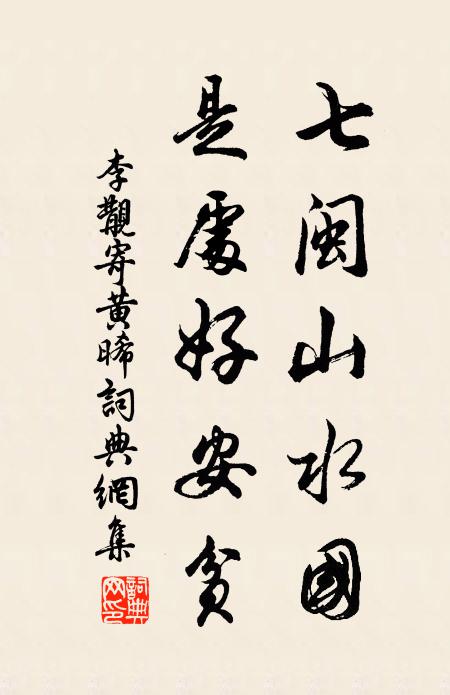 七閩山水國
是處好安貧
李觀寄黃晞詞典網集
詞典
网印